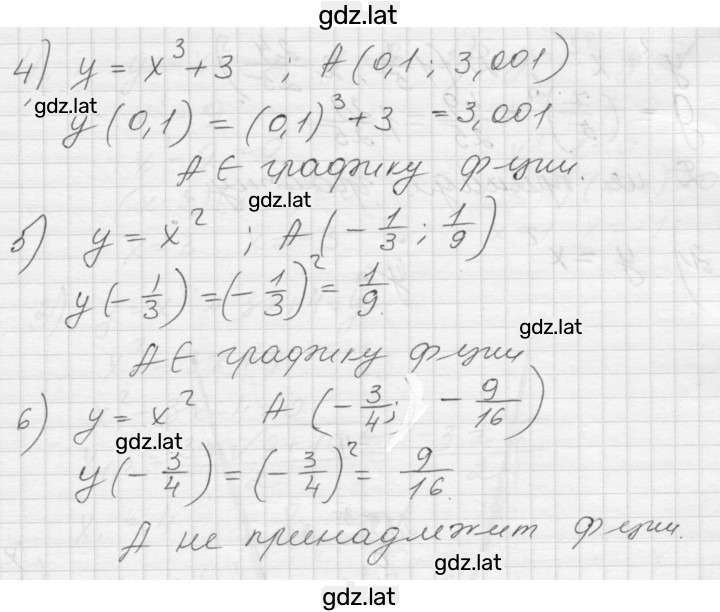 gdz.lat
4) y = x³ + 3 ; A (0,1 ; 3,001)
gdz.lat
y (0,1) = (0,1)³ + 3 = 3,001
A ∈ графику ф-ции.
gdz.lat
5) y = x² ; A (- 1/3 ; 1/9)
y (- 1/3) = (- 1/3)² = 1/9.
gdz.lat
A ∈ графику ф-ции
6) y = x² A (- 3/4 ; - 9/16)
gdz.lat
y (- 3/4) = (- 3/4)² = 9/16.
A не принадлежит ф-ции.
gdz.lat
gdz.lat